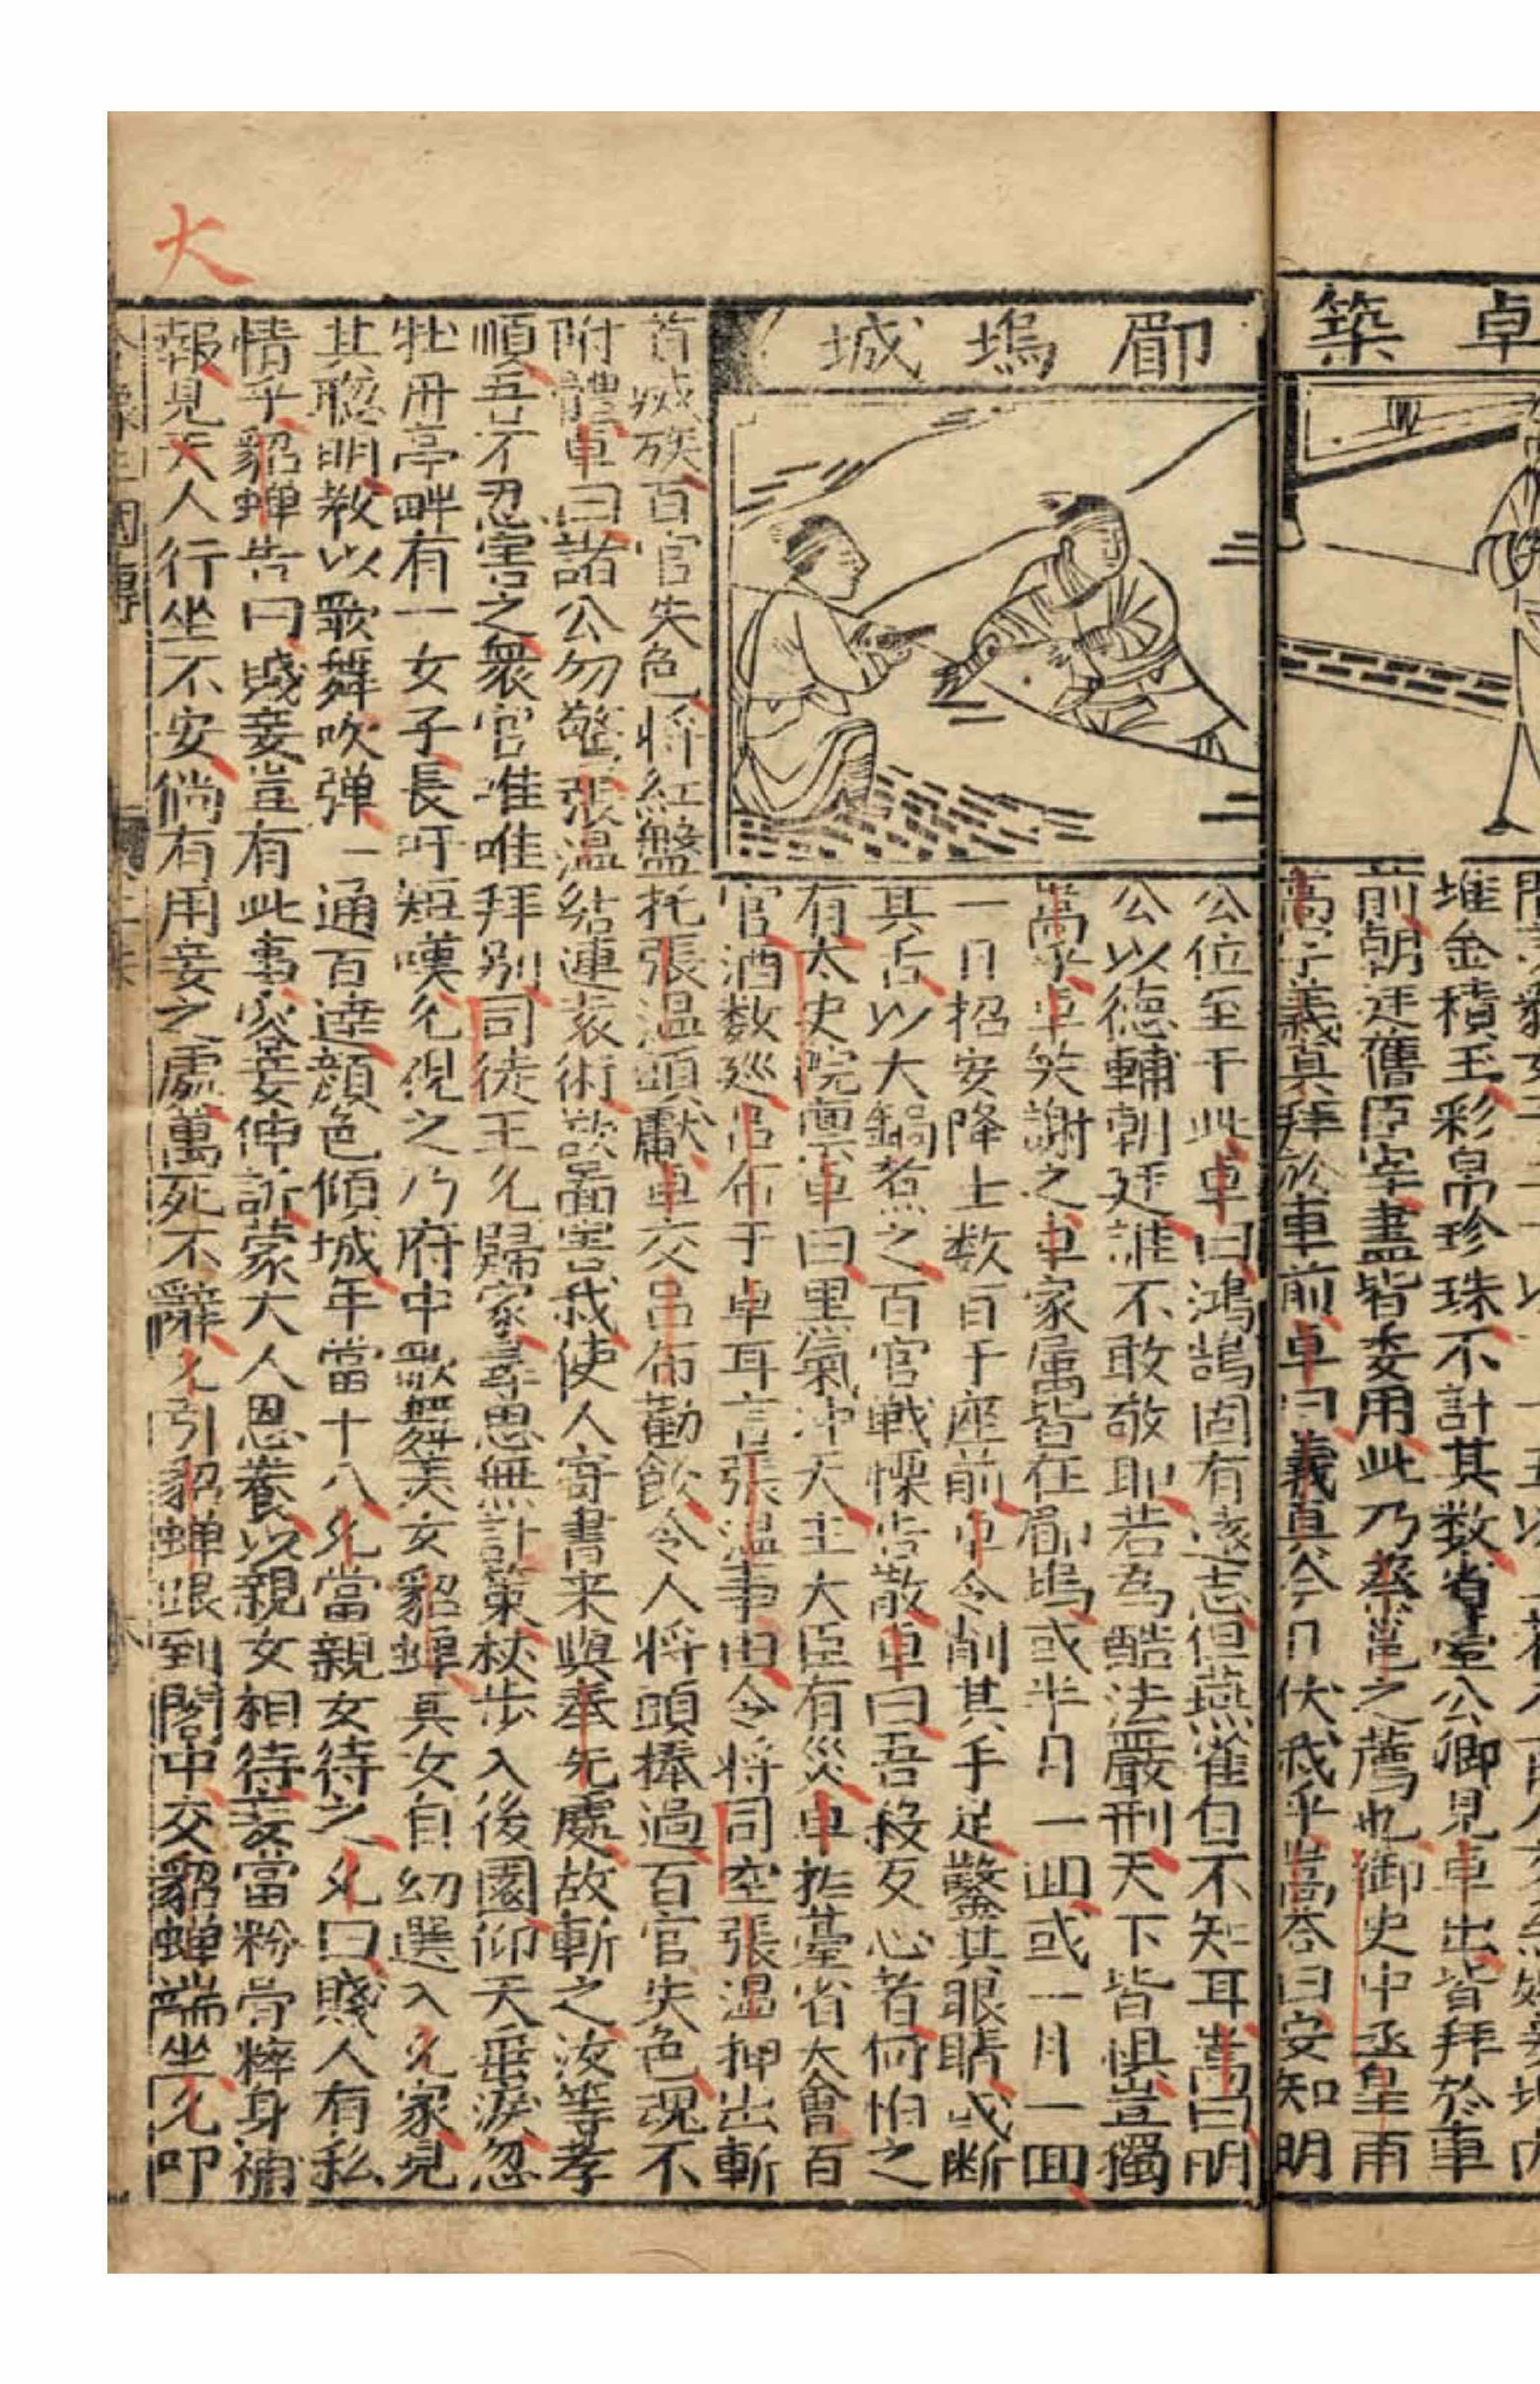 卓築
郿塢城
堆金積玉彩帛珍珠不計其数省臺公卿見卓出皆拜於車
前朝廷舊臣宰盡皆委用此乃蔡邕之薦也御史中丞皇甫
嵩字義真拜於車前卓曰義真今日伏我乎嵩答曰安知明
公位至于此卓曰鴻鵠固有遠志但燕雀自不知耳嵩曰明
公以德輔朝廷誰不敢敬耶若為酷法嚴刑天下皆惧豈獨
嵩乎卓笑謝之卓家属皆在郿塢或半月一回或一月一回
一日招安降士数百于座前卓令削其手足鑿其眼睛或断
其舌以大鍋煮之百官戰慄告散卓曰吾殺反心者何怕之
有太史院禀卓曰黑氣冲天主大臣有災卓於臺省大會百
官酒数廵吕布于卓耳言張温事由令将司空張温押出斬
首滅族百官失色将紅盤托張温頭獻卓交吕布勸飲令人将頭捧過百官失色魂不
附體卓曰諸公勿驚張温結連袁術欲啚害我使人寄書来與奉先處故斬之汝等孝
順吾吾不忍害之衆官唯唯拜别司徒王允歸家尋思無計策杖步入後園仰天垂淚忽
牡丹亭畔有一女子長吁短嘆允視之乃府中歌舞美女貂蟬其女自幼選入允家見
其聡明教以歌舞吹弹一通百逹顔色傾城年當十八允當親女待之允曰賤人有私
情乎貂蟬告曰賤妾豈有此事容妾伸訴蒙大人恩養以親女相待妾當粉骨粹身補
報見大人行坐不安倘有用妾之處萬死不辭允引貂蟬跟到閣中交貂蟬端坐允叩
大